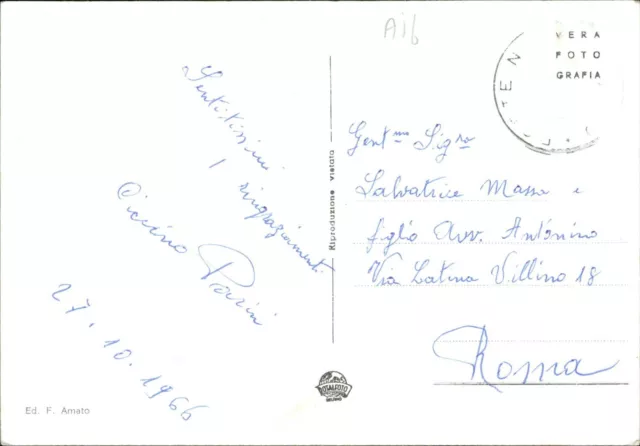 Aib
VERA
FOTO
GRAFIA
Sentitissimi
ringraziamenti
Ciccino Parini
27.10.1966
Gent.ma Sig.ra
Salvatrice Massa e
figlio Avv. Antonino
Via Latina Villino 18
Roma
Riproduzione vietata
Ed. F. Amato